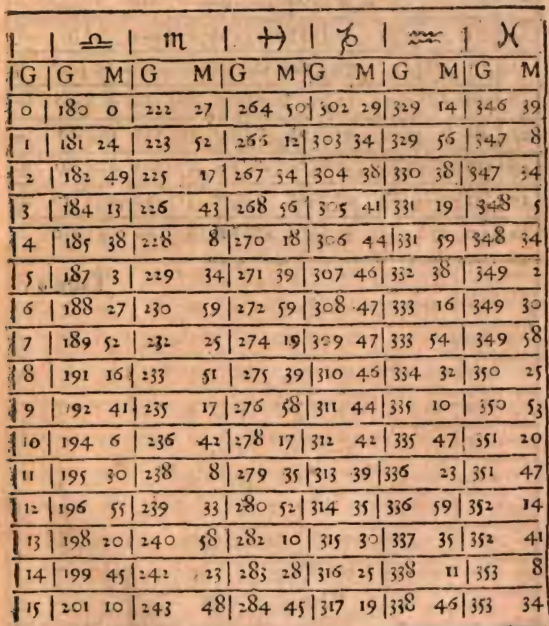 ♎ ♏ ♐ ♑ ♒ ♓
G G M G M G M G M G M G M
0 180 0 222 27 264 50 302 29 329 14 346 39
1 181 24 223 52 266 12 303 34 329 56 347 8
2 182 49 225 17 267 34 304 38 330 38 347 34
3 184 13 226 43 268 56 305 41 331 19 348 5
4 185 38 228 8 270 18 306 44 331 59 348 34
5 187 3 229 34 271 39 307 46 332 38 349 2
6 188 27 230 59 272 59 308 47 333 16 349 30
7 189 52 232 25 274 19 309 47 333 54 349 58
8 191 16 233 51 275 39 310 46 334 32 350 25
9 192 41 235 17 276 58 311 44 335 10 350 53
10 194 6 236 42 278 17 312 42 335 47 351 20
11 195 30 238 8 279 35 313 39 336 23 351 47
12 196 55 239 33 280 52 314 35 336 59 352 14
13 198 20 240 58 282 10 315 30 337 35 352 41
14 199 45 242 23 283 28 316 25 338 11 353 8
15 201 10 243 48 284 45 317 19 338 46 353 34